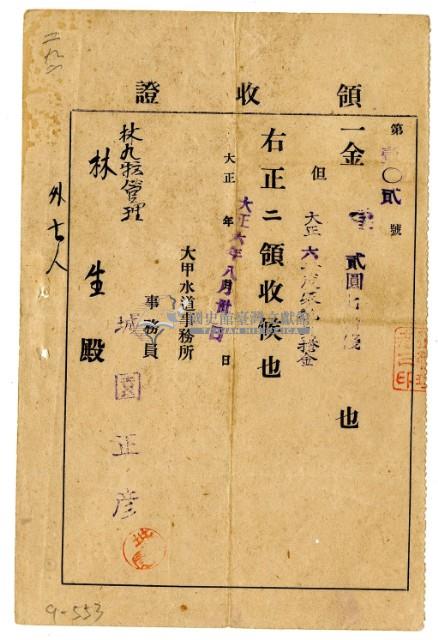 領收證
第壹〇貳號
一金 貳圓七 也
但 大正六年
右正ニ領收候也
大正 年 月 日
大正六年八月卅日
大甲水道事務所
事務員
城園正彦
林九 管理
林 生殿
外七人
國史館臺灣文獻館
9-553